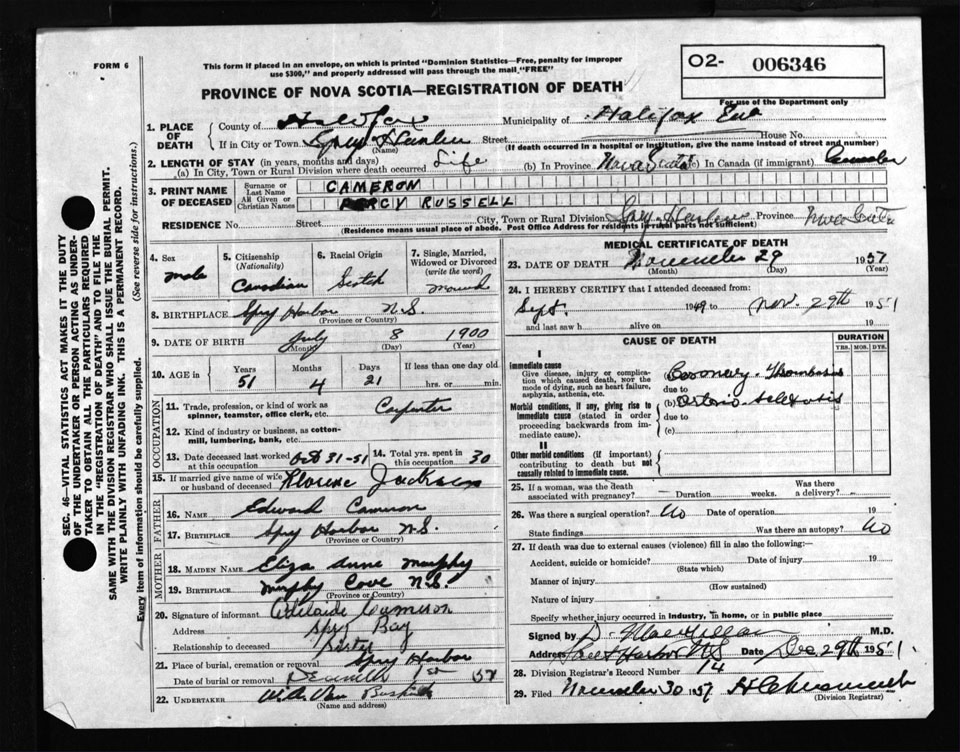 FORM 6
This form if placed in an envelope, on which is printed "Dominion Statistics—Free, penalty for improper
use $300," and properly addressed will pass through the mail "FREE"
PROVINCE OF NOVA SCOTIA—REGISTRATION OF DEATH
O2- 006346
For use of the Department only
1. PLACE OF DEATH
County of Halifax Municipality of Halifax
If in City or Town Spry Harbor Street House No.
(Name) (If death occurred in a hospital or institution, give the name instead of street and number)
2. LENGTH OF STAY (in years, months and days)
(a) In City, Town or Rural Division where death occurred Life (b) In Province Nova Scotia (c) In Canada (if immigrant)
3. PRINT NAME OF DECEASED
Surname or Last Name CAMERON
All Given or Christian Names PERCY RUSSELL
RESIDENCE No. Street City, Town or Rural Division Spry Harbor Province Nova Scotia
(Residence means usual place of abode. Post Office Address for residents in rural parts not sufficient)
4. Sex male
5. Citizenship (Nationality) Canadian
6. Racial Origin Scotch
7. Single, Married, Widowed or Divorced (write the word) Married
8. BIRTHPLACE Spry Harbor N.S.
(Province or Country)
9. DATE OF BIRTH July 8 1900
(Month) (Day) (Year)
10. AGE in Years Months Days If less than one day old
51 4 21 hrs. or min.
OCCUPATION
11. Trade, profession, or kind of work as spinner, teamster, office clerk, etc. Carpenter
12. Kind of industry or business, as cotton-mill, lumbering, bank, etc.
13. Date deceased last worked at this occupation Oct 31-51
14. Total yrs. spent in this occupation 30
15. If married give name of wife or husband of deceased Florence Jackson
FATHER
16. NAME Edward Cameron
17. BIRTHPLACE Spry Harbor N.S.
(Province or Country)
MOTHER
18. MAIDEN NAME Eliza Anne Murphy
19. BIRTHPLACE Murphy Cove N.S.
(Province or Country)
20. Signature of informant Adelaide Cameron
Address Spry Bay
Relationship to deceased Sister
21. Place of burial, cremation or removal Spry Harbor
Date of burial or removal December 1st 51
22. UNDERTAKER
(Name and address)
MEDICAL CERTIFICATE OF DEATH
23. DATE OF DEATH November 29 1951
(Month) (Day) (Year)
24. I HEREBY CERTIFY that I attended deceased from:
Sept. 1949 to Nov. 29th 1951
and last saw h alive on 19
CAUSE OF DEATH
DURATION
YRS. MOS. DYS.
I
Immediate cause
Give disease, injury or complication which caused death, not the mode of dying, such as heart failure, asphyxia, asthenia, etc.
(a) Coronary Thrombosis
due to
Morbid conditions, if any, giving rise to immediate cause (stated in order proceeding backwards from immediate cause).
(b) Arterio-sclerosis
due to
(c)
II
Other morbid conditions (if important) contributing to death but not causally related to immediate cause.
25. If a woman, was the death associated with pregnancy? — Duration weeks. Was there a delivery?
26. Was there a surgical operation? No Date of operation 19
State findings Was there an autopsy? No
27. If death was due to external causes (violence) fill in also the following:—
Accident, suicide or homicide? Date of injury 19
(State which)
Manner of injury
(How sustained)
Nature of injury
Specify whether injury occurred in industry, in home, or in public place
Signed by M.D.
Address Sheet Harbor NS Date Dec 29th 1951.
28. Division Registrar's Record Number 14
29. Filed November 30 1951
(Division Registrar)
SEC. 46—VITAL STATISTICS ACT MAKES IT THE DUTY
OF THE UNDERTAKER OR PERSON ACTING AS UNDER-
TAKER TO OBTAIN ALL THE PARTICULARS REQUIRED
IN THE "REGISTRATION OF DEATH" AND TO FILE THE
SAME WITH THE DIVISION REGISTRAR WHO SHALL ISSUE THE BURIAL PERMIT.
WRITE PLAINLY WITH UNFADING INK. THIS IS A PERMANENT RECORD.
Every item of information should be carefully supplied. (See reverse side for instructions.)